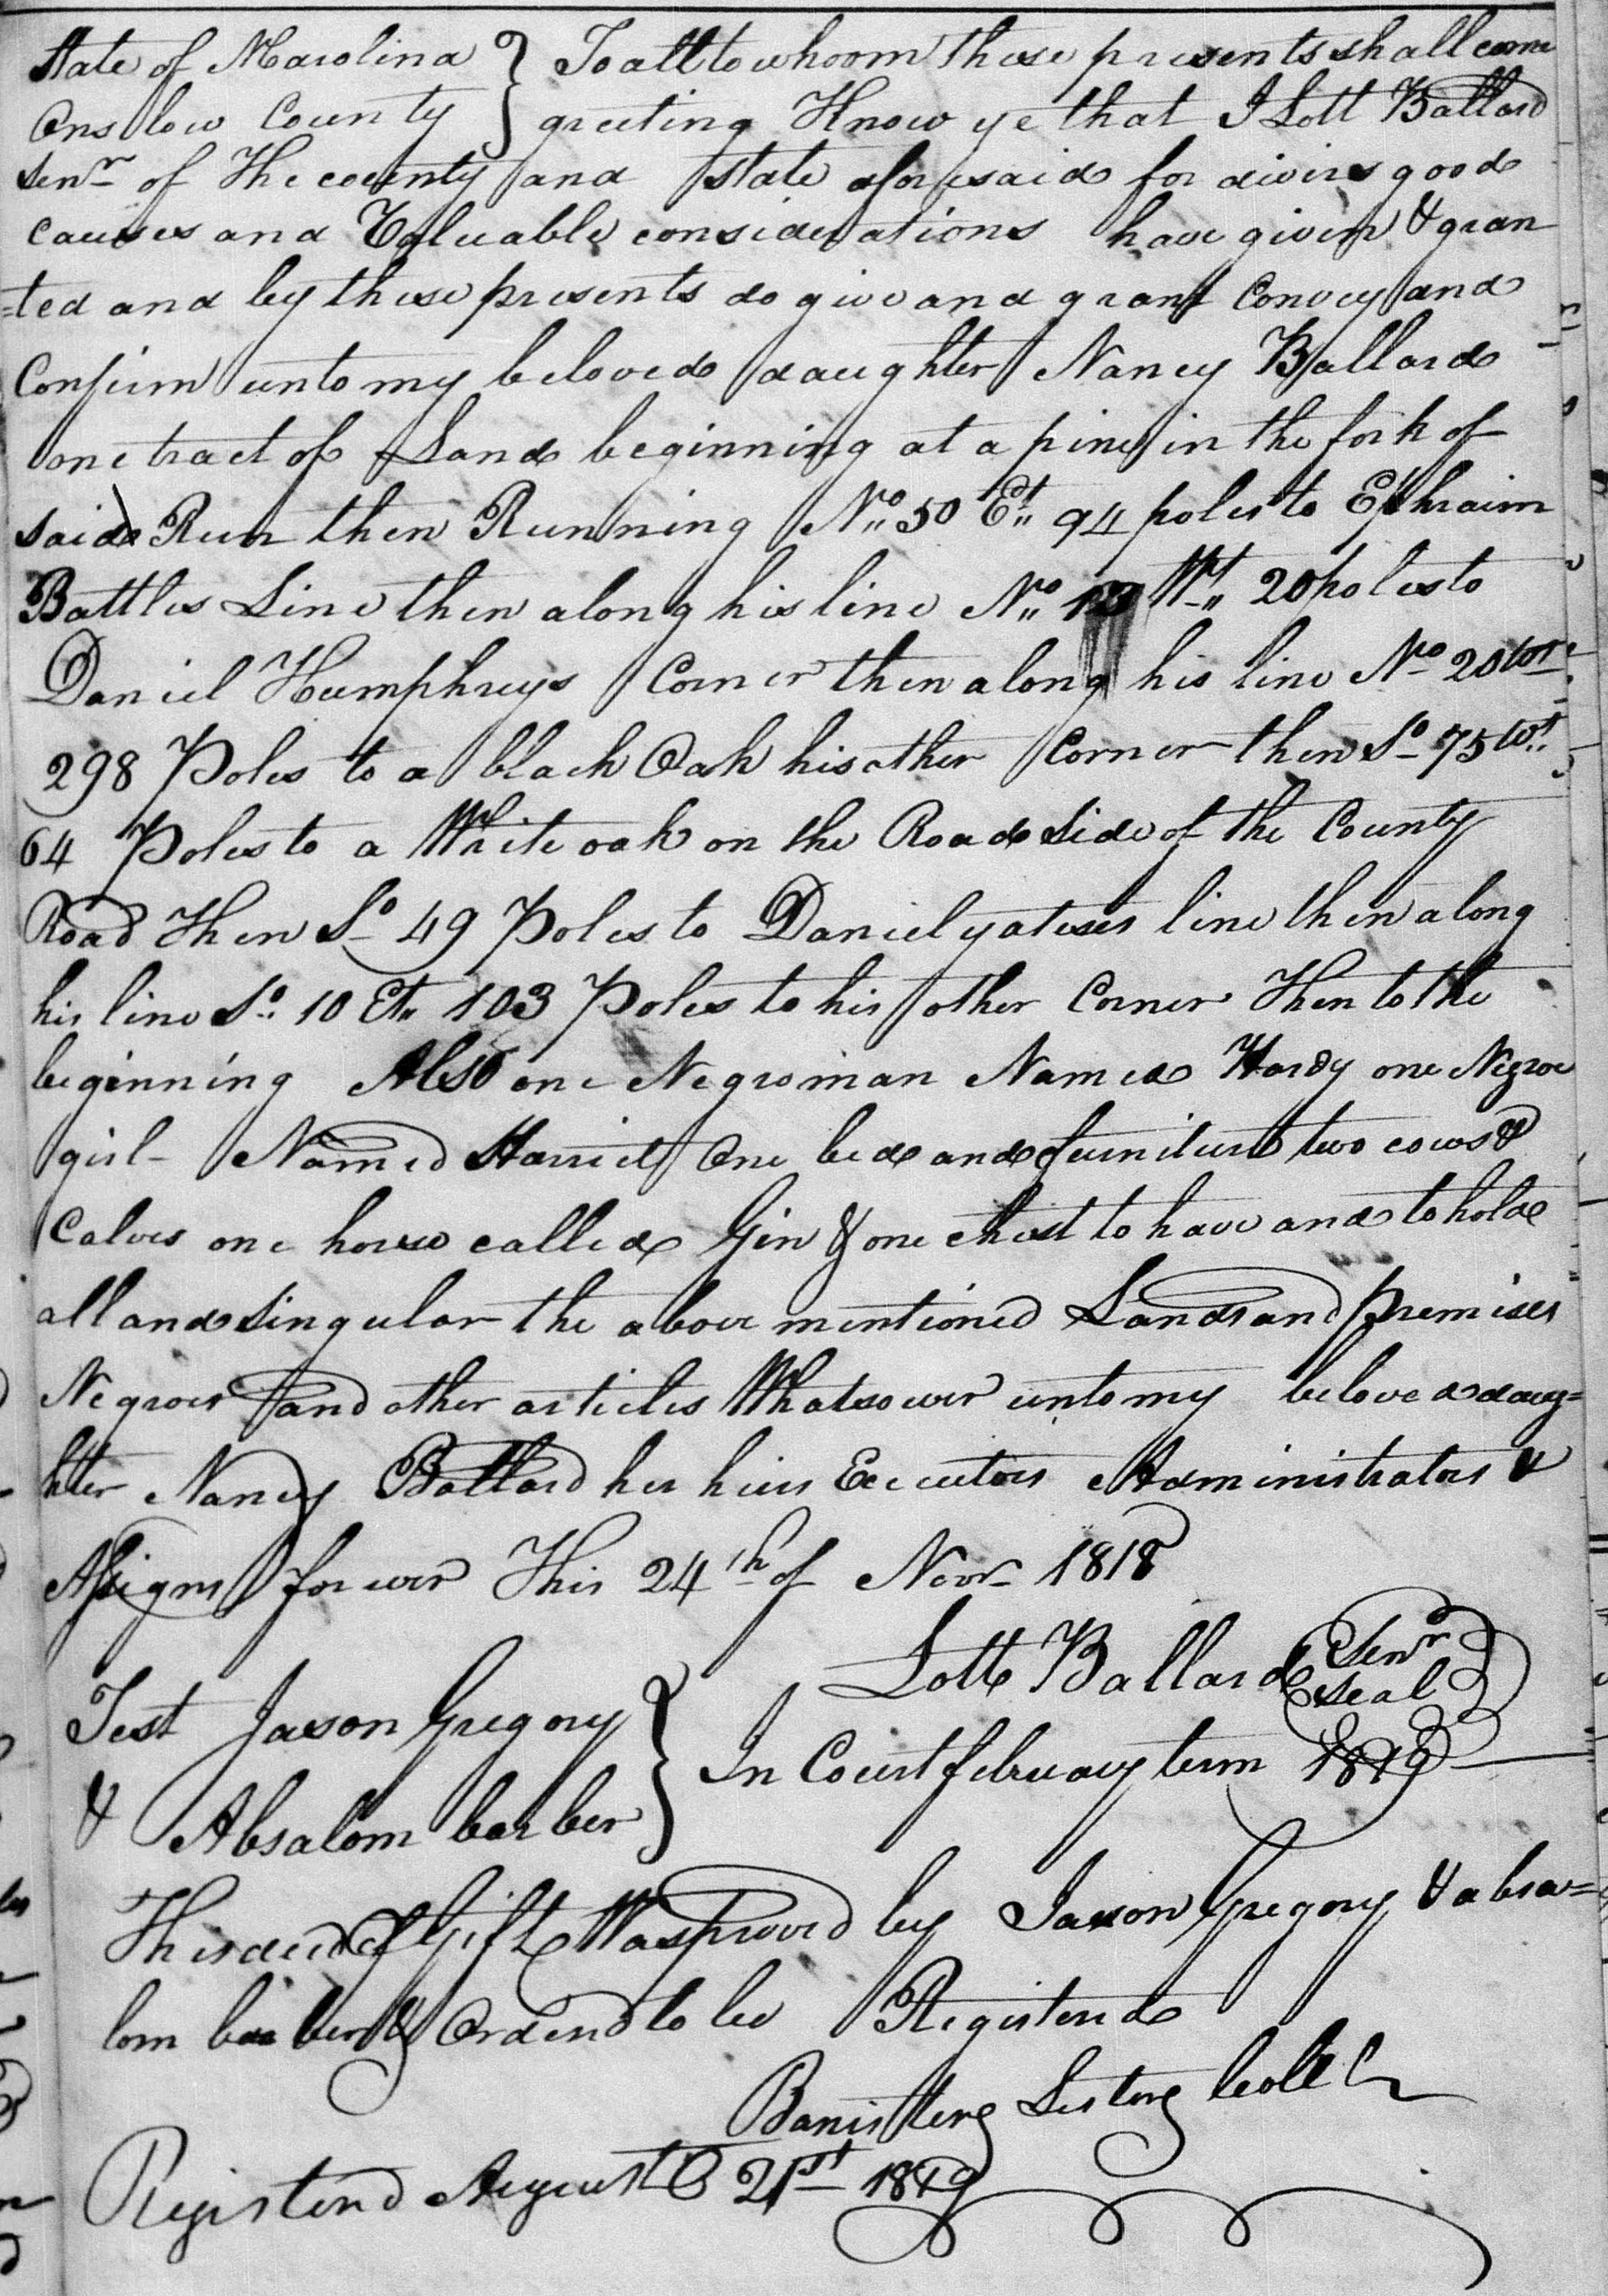 State of N Carolina } To all to whoom these presents shall come
Onslow County } greeting Know ye that I Lott Ballard
Senr of The county and state aforesaid for divirs good
causes and Valuable considerations have given & gran
=ted and by these presents do give and grant Convey and
Confirm unto my beloved daughter Nancy Ballard
one tract of Land beginning at a pine in the fork of
said Run then Running No 50 Et 94 poles to Ephraim
Battles Line then along his line No 13 Wt 20 poles to
Daniel Humphreys Corner then along his line No 20 Wt
298 Poles to a black Oak his other Corner then So 75 Wt
64 Poles to a White oak on the Road Side of the County
Road Then So 49 Poles to Daniel yateses line then along
his line So 10 Et 103 Poles to his other Corner Then to the
beginning Also one Negro man Named Hardy one Negroe
girl Named Harriet One bed and furniture two cows &
Calves one horse called Gin & one chest to have and to hold
all and Singular the above mentioned Lands and premises
Negroes and other articles Whatsoever unto my beloved daug=
hter Nancy Ballard her heirs Executors Administrators &
Assigns forever This 24th of Novr 1818
Lott Ballard Senr seal
Test Jason Gregory
& Absalom barber } In Court february term 1819
This deed of Gift Was proved by Jason Gregory & absa=
lom barber & Ordered to be Registered
Banister Lester
Registered August 21st 1819